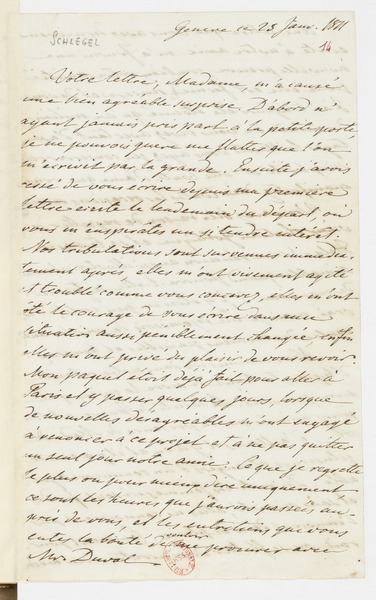 Genève ce 25 Janv. 1811
SCHLEGEL
14
Votre lettre, Madame, m'a causé
une bien agréable surprise. D'abord n'
ayant jamais pris part à la petite porte
je ne pouvois guère me flatter que l'on
m'écrivit par la grande. Ensuite j'avois
cessé de vous écrire depuis ma première
lettre écrite le lendemain du départ, où
vous m'inspirâtes un si tendre intérêt.
Nos tribulations sont survenues immédia-
tement après, elles m'ont vivement agité
et troublé comme vous concevez, elles m'ont
ôté le courage de vous écrire dans une
situation aussi péniblement changée enfin
elles m'ont privé du plaisir de vous revoir.
Mon paquet étoit déjà fait pour aller à
Paris et y passer quelques jours, lorsque
de nouvelles désagréables m'ont engagé
à renoncer à ce projet et à ne pas quitter
un seul jour notre amie. Ce que je regrette
le plus ou pour mieux dire uniquement
ce sont les heures que j'aurois passées au-
près de vous, et les entretiens que vous
eutes la bonté de vouloir me procurer avec
Mr. Duval